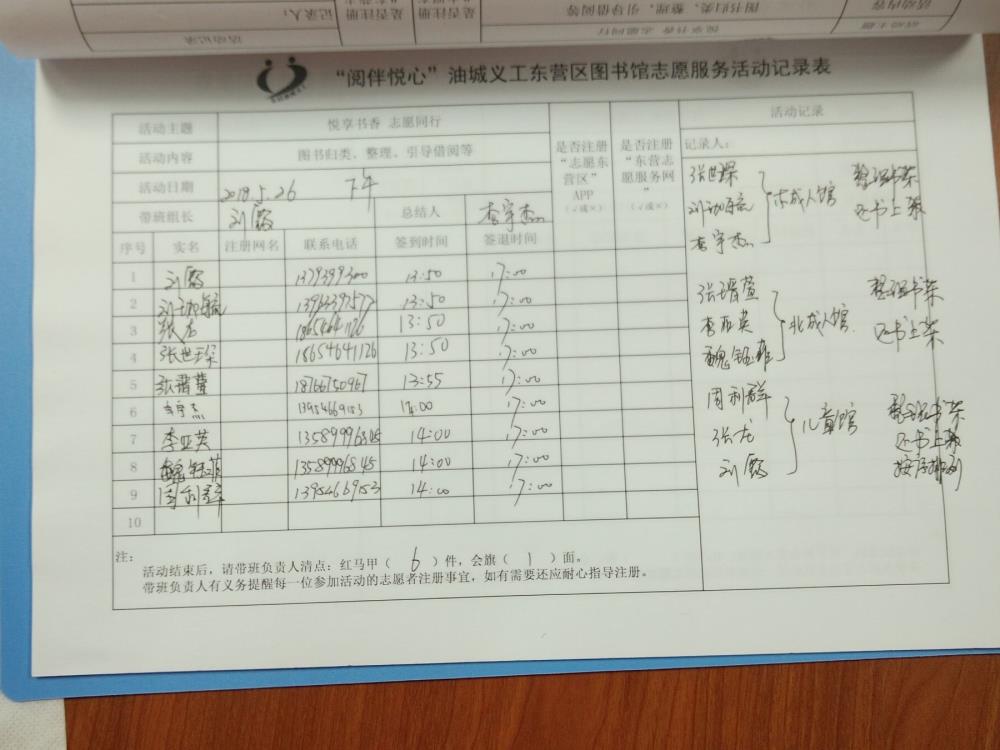 “阅伴悦心”油城义工东营区图书馆志愿服务活动记录表
活动主题 悦享书香 志愿同行
活动内容 图书归类、整理、引导借阅等
活动日期 2018.5.26 下午
带班组长 刘霞 总结人 李宇杰
是否注册“志愿东营区”APP(√或×)
是否注册“东营志愿服务网”(√或×)
活动记录
记录人:
序号 实名 注册网名 联系电话 签到时间 签退时间
1 刘霞 13:50 17:00
2 13:50 17:00
3 张龙 18654641126 13:50 17:00
4 张世琛 18654641126 13:50 17:00
5 张珺萱 18766750967 13:55 17:00
6 李宇杰 13954669153 14:00 17:00
7 李亚英 14:00 17:00
8 魏钰菲 13589996845 14:00 17:00
9 周利群 13954669153 14:00 17:00
10
张世琛
李宇杰
东成人馆
整理书架
还书上架
张珺萱
李亚英
魏钰菲
北成人馆
整理书架
还书上架
周利群
张龙
刘霞
儿童馆
整理书架
还书上架
按序排列
注:
活动结束后,请带班负责人清点:红马甲( 6 )件,会旗( 1 )面。
带班负责人有义务提醒每一位参加活动的志愿者注册事宜,如有需要还应耐心指导注册。